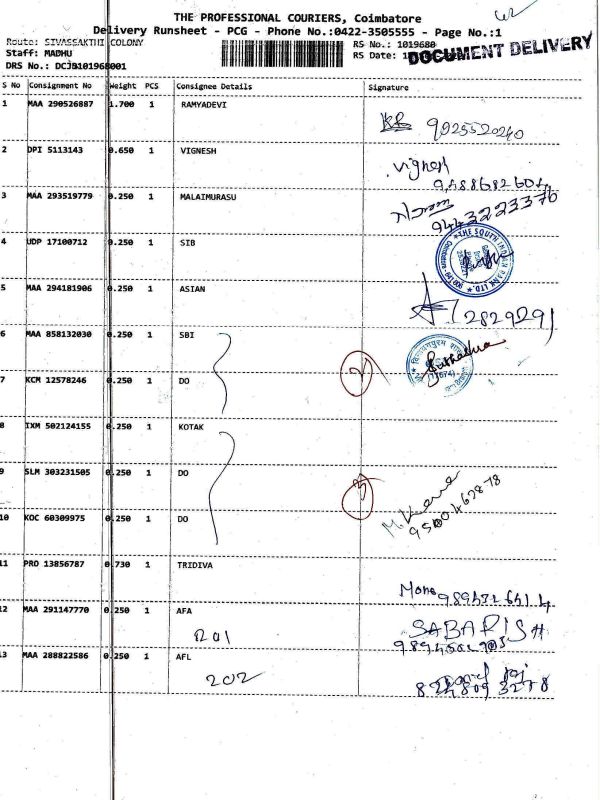 THE PROFESSIONAL COURIERS, Coimbatore
Delivery Runsheet - PCG - Phone No.:0422-3505555 - Page No.:1
Route: SIVASSAKTHI COLONY
Staff: MADHU
DRS No.: DCJB101968001
RS No.: 1019680
RS Date:
DOCUMENT DELIVERY
S No Consignment No Weight PCS Consignee Details Signature
1 MAA 290526887 1.700 1 RAMYADEVI
9025520240
2 DPI 5113143 0.650 1 VIGNESH
Vignesh
9488682604
3 MAA 293519779 0.250 1 MALAIMURASU
9443223376
4 UDP 17100712 0.250 1 SIB
THE SOUTH INDIAN BANK LTD.
5 MAA 294181906 0.250 1 ASIAN
2829291
6 MAA 858132030 0.250 1 SBI
2
7 KCM 12578246 0.250 1 DO
8 IXM 502124155 0.250 1 KOTAK
9 SLM 303231505 0.250 1 DO
3
10 KOC 60309975 0.250 1 DO
11 PRO 13856787 0.730 1 TRIDIVA
12 MAA 291147770 0.250 1 AFA
201
SABARISH
13 MAA 288822586 0.250 1 AFL
202